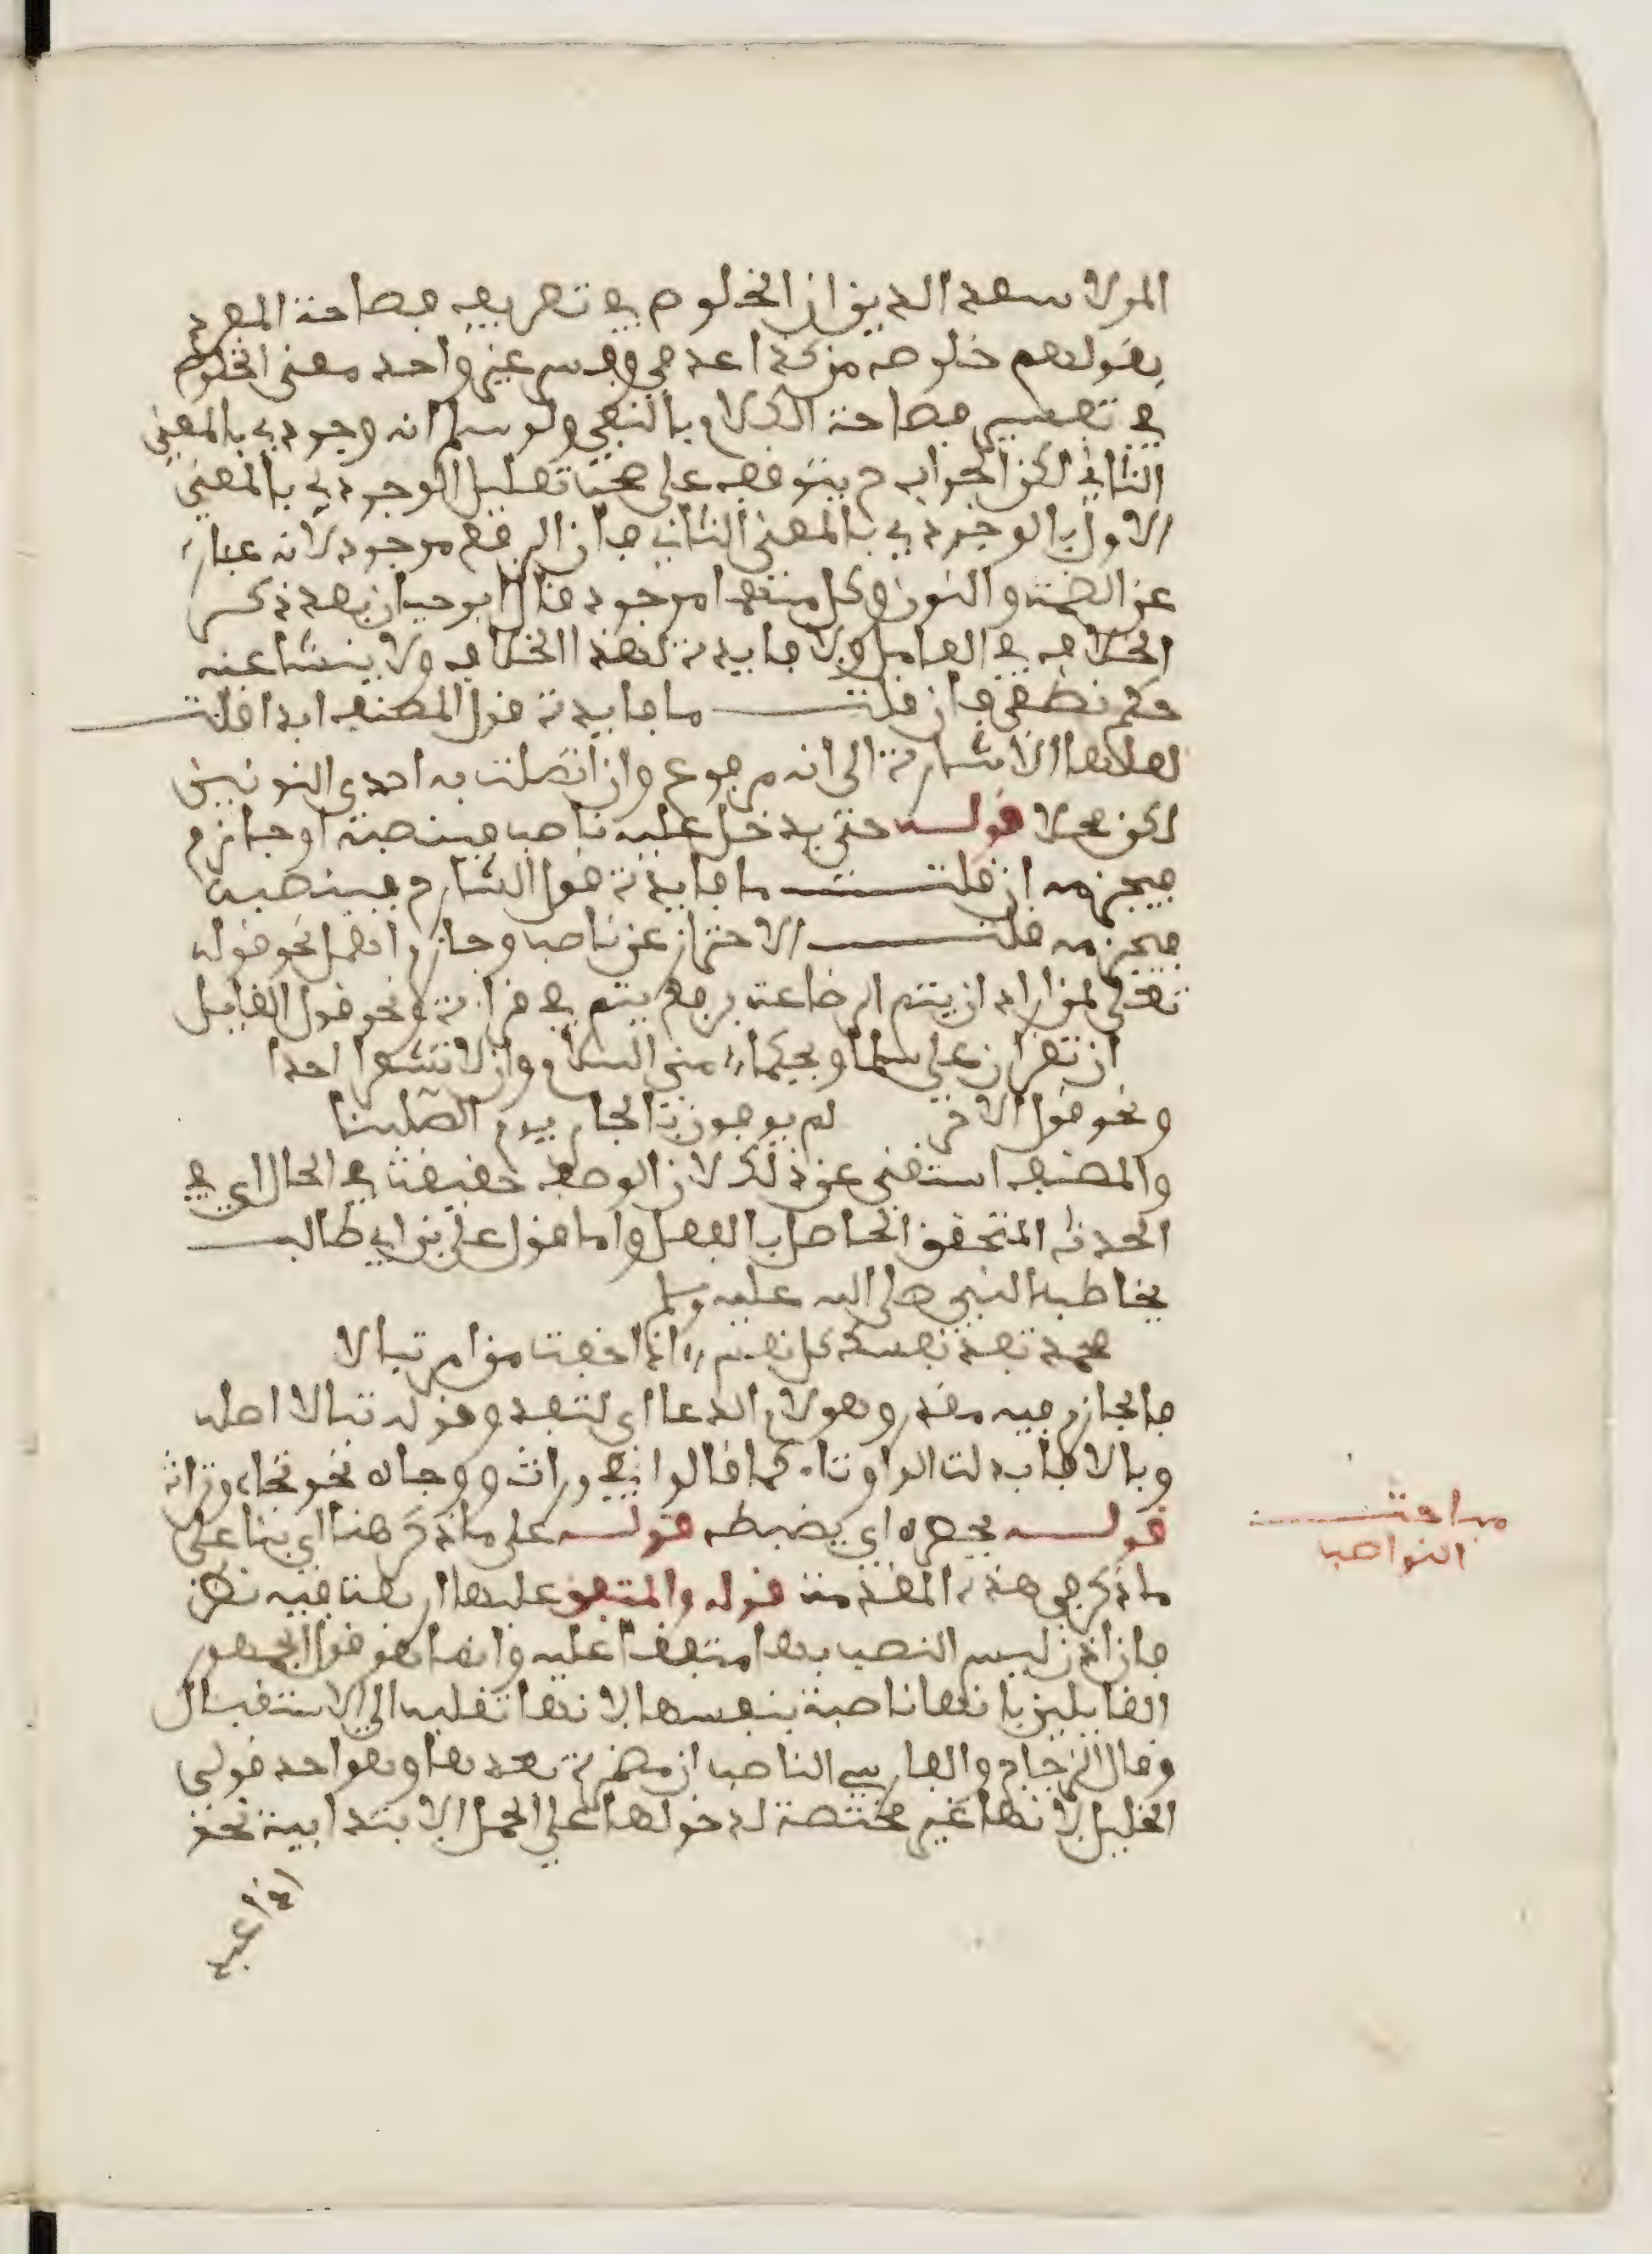 المولا سعد الدين ان الخلوص في تعريف فصاحة المفرد
بقولهم خلوصه من كذا عدمي وفسر غير واحد معنى الخلوص
في تفسير فصاحة الكلام بالنفي ولو سلم انه وجودي بالمعنى
الثاني لكن الجواب لم يتوقف على صحة تعليل الوجودي بالمعنى
الاول بالوجودي بالمعنى الثاني فان الرفع موجود لانه عبارة
عن الضمة والنون وكل منهما موجود قال ابو حيان بعد ذكر
الخلاف في العامل ولا فايدة لهذا الخلاف ولا ينشا عنه
حكم نطقي فان قلت ما فايدة قول المصنف ابدا قلت
لعلها الاشارة الى انه مرفوع وان اتصلت به احدى النونين
لكن محلا قوله حتى يدخل عليه ناصب فينصبه او جازم
فيجزمه ان قلت ما فايدة قول الشارح فينصبه
فيجزمه قلت الاحتراز عن ناصب وجازم اهمل نحو قوله
تعلى لمن اراد ان يتم الرضاعة برفع يتم في قراءة ونحو قول القايل
ان تقران على اسماء ويحكما مني السلام وان لا تشعرا احدا
ونحو قول الاخر لم يوفون بالجار يوم الصليفا
والمصنف استغنى عن ذلك لان الوصف حقيقة في الحال اي في
الحدث المتحقق الحاصل بالفعل واما قول علي بن ابي طالب
يخاطب النبي صلى الله عليه وسلم
محمد تفد نفسك كل نفس اذا خفت من امر تبالا
فالجازم فيه مقدر وهو لام الدعا اي لتفد وقوله تبالا اصله
وبالا فابدلت الواو تاء كما قالوا في وراث ووجاه نحو تجاه وتراث
قوله بحصره اي يضبطه قوله على ما ذكر هنا اي بنا على
ما ذكر في هذه المقدمة قوله والمتفق عليها اربعة فيه نظر
فان اذن ليس النصب بها متفقا عليه وانما هو قول الجمهور
القايلين بانها ناصبة بنفسها لانها تقلبه الى الاستقبال
وقال الزجاج والفارسي الناصب ان مضمرة بعدها وهو احد قولي
الخليل لانها غير مختصة لدخولها على الجمل الابتدايية نحو
مباحث
النواصب